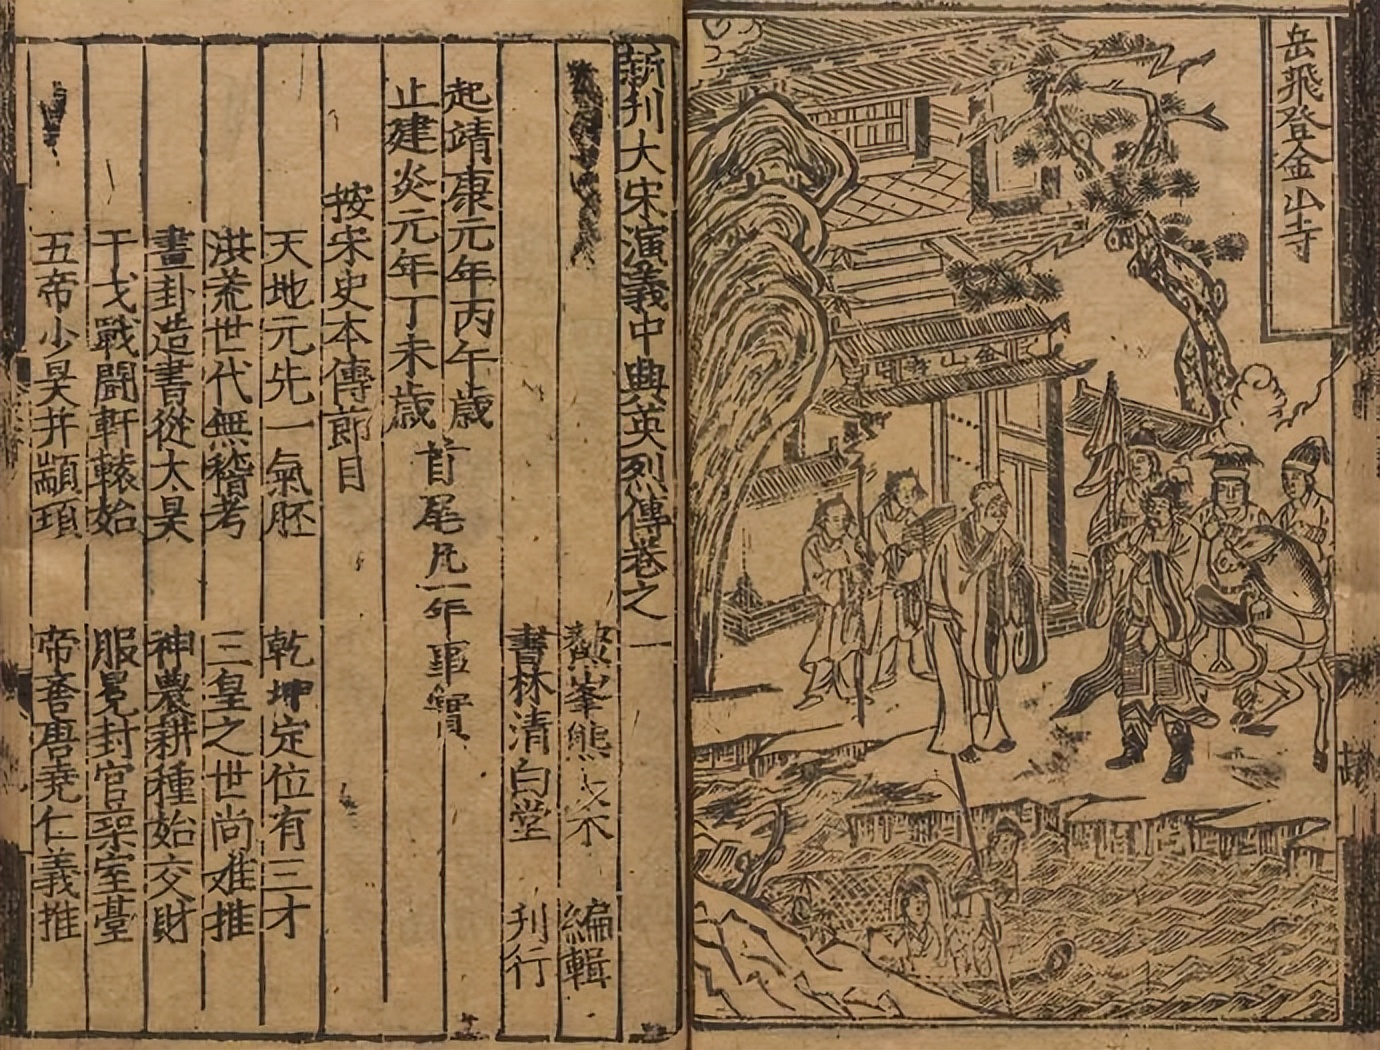 岳飛登金山寺
金山寺
新刊大宋演義中興英烈傳卷之一
鰲峯熊大木 編輯
書林清白堂 刊行
起靖康元年丙午歲
止建炎元年丁未歲
首尾凡一年事實
按宋史本傳節目
天地元先一氣胚 乾坤定位有三才
洪荒世代無稽考 三皇之世尚难推
畫卦造書從太昊 神農耕種始交財
干戈戰鬪軒轅始 服冕封官築室臺
五帝少昊并顓頊 帝嚳唐堯仁義推